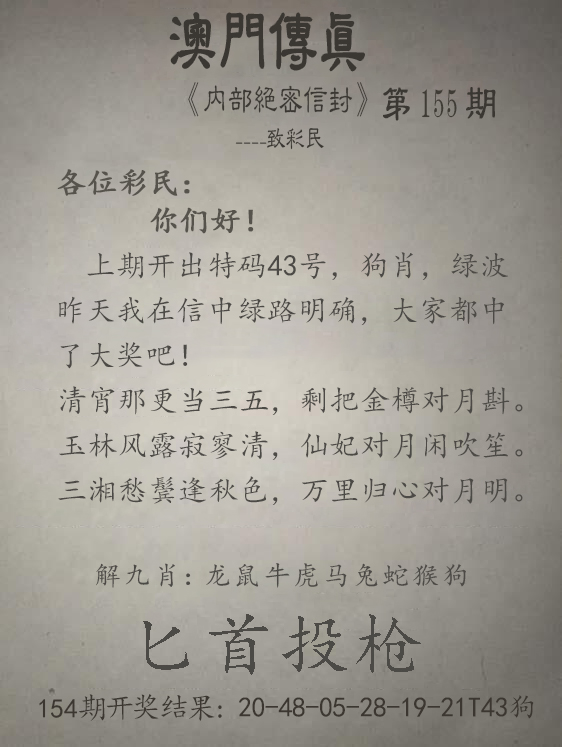 澳門傳眞
《内部絕密信封》第155期
----致彩民
各位彩民：
你们好！
上期开出特码43号，狗肖，绿波
昨天我在信中绿路明确，大家都中
了大奖吧！
清宵那更当三五，剩把金樽对月斟。
玉林风露寂寥清，仙妃对月闲吹笙。
三湘愁鬓逢秋色，万里归心对月明。
解九肖：龙鼠牛虎马兔蛇猴狗
匕首投枪
154期开奖结果：20-48-05-28-19-21T43狗